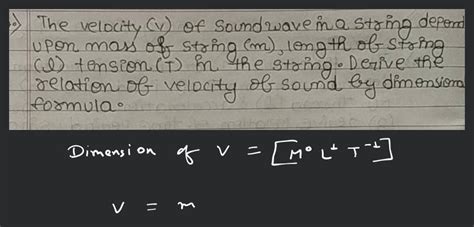 The velocity (v) of sound wave in a string depend
upon mass of string (m), length of string
(l) tension (T) in the string. Derive the
relation of velocity of sound by dimensiona
formula.
Dimension of V = [M⁰ L¹ T⁻¹]
V = m